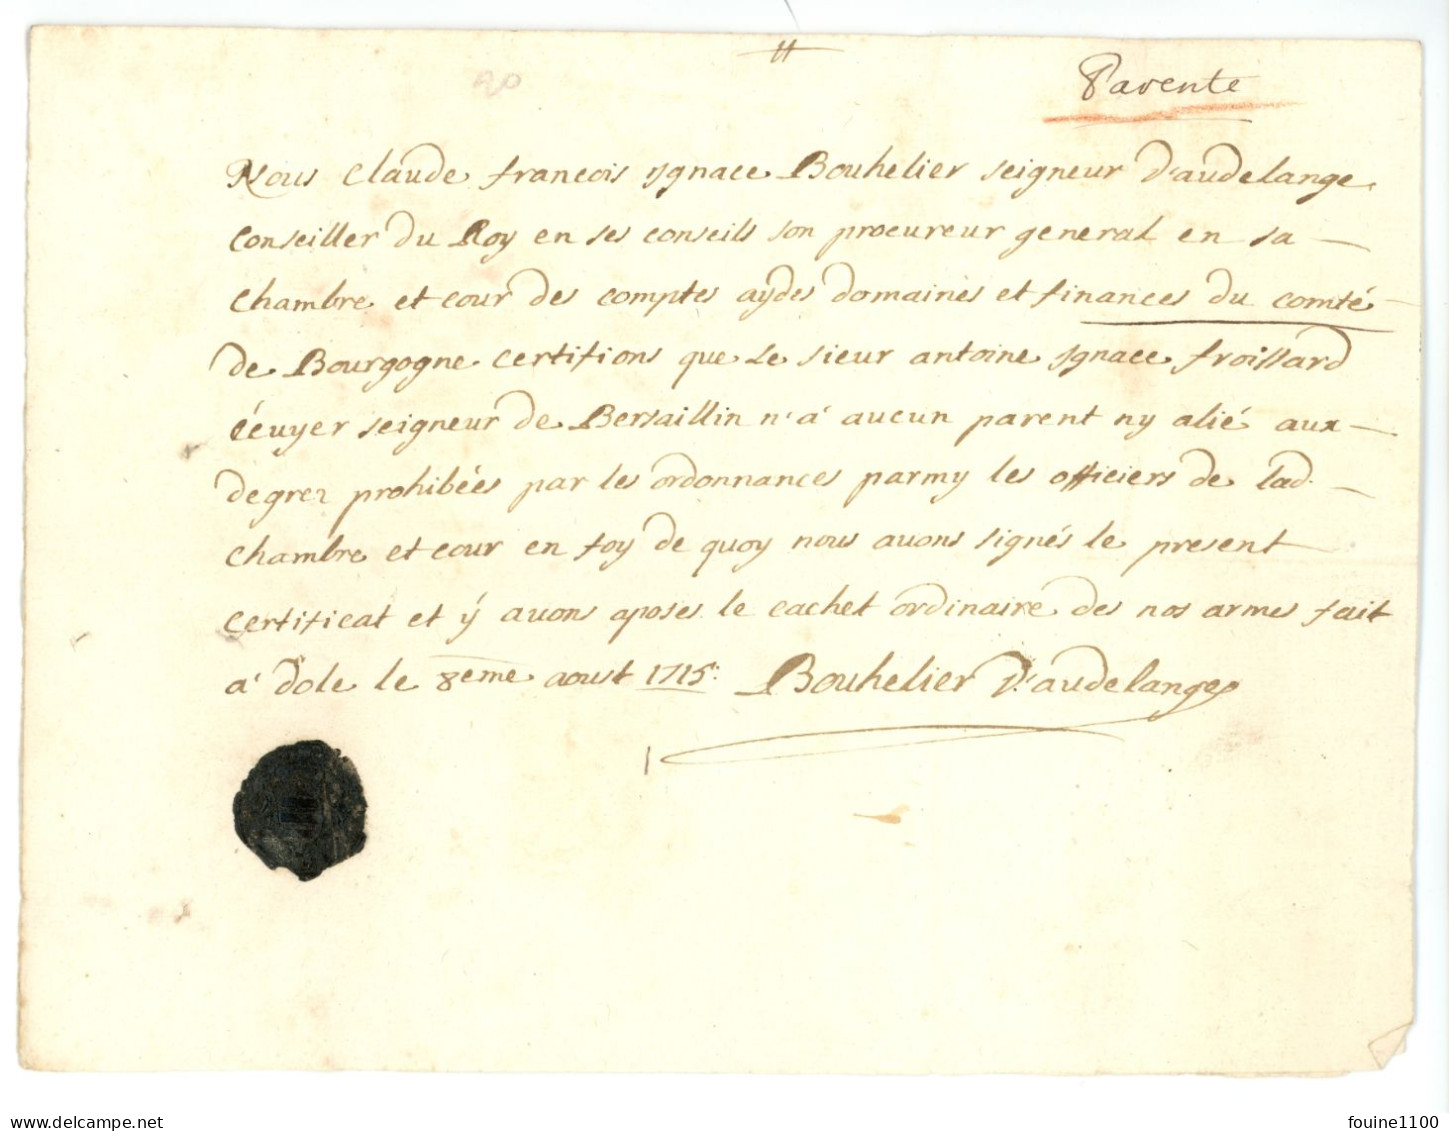 20
Parente
Nous Claude francois ygnace Bouhelier seigneur D'audelange
Conseiller du Roy en ses conseils son procureur general en sa
Chambre et cour des comptes aydes domaines et finances du comté
de Bourgogne certifions que Le sieur antoine ygnace froissard
écuyer seigneur de Bersaillin n'a aucun parent ny alié aux
degrez prohibées par les ordonnances parmy les officiers de lad.
Chambre et cour en foy de quoy nous auons signés le present
certificat et ÿ auons aposes le cachet ordinaire des nos armes fait
a' dole le 8eme aoust 1715: Bouhelier D'audelange
delcampe.net
fouine1100